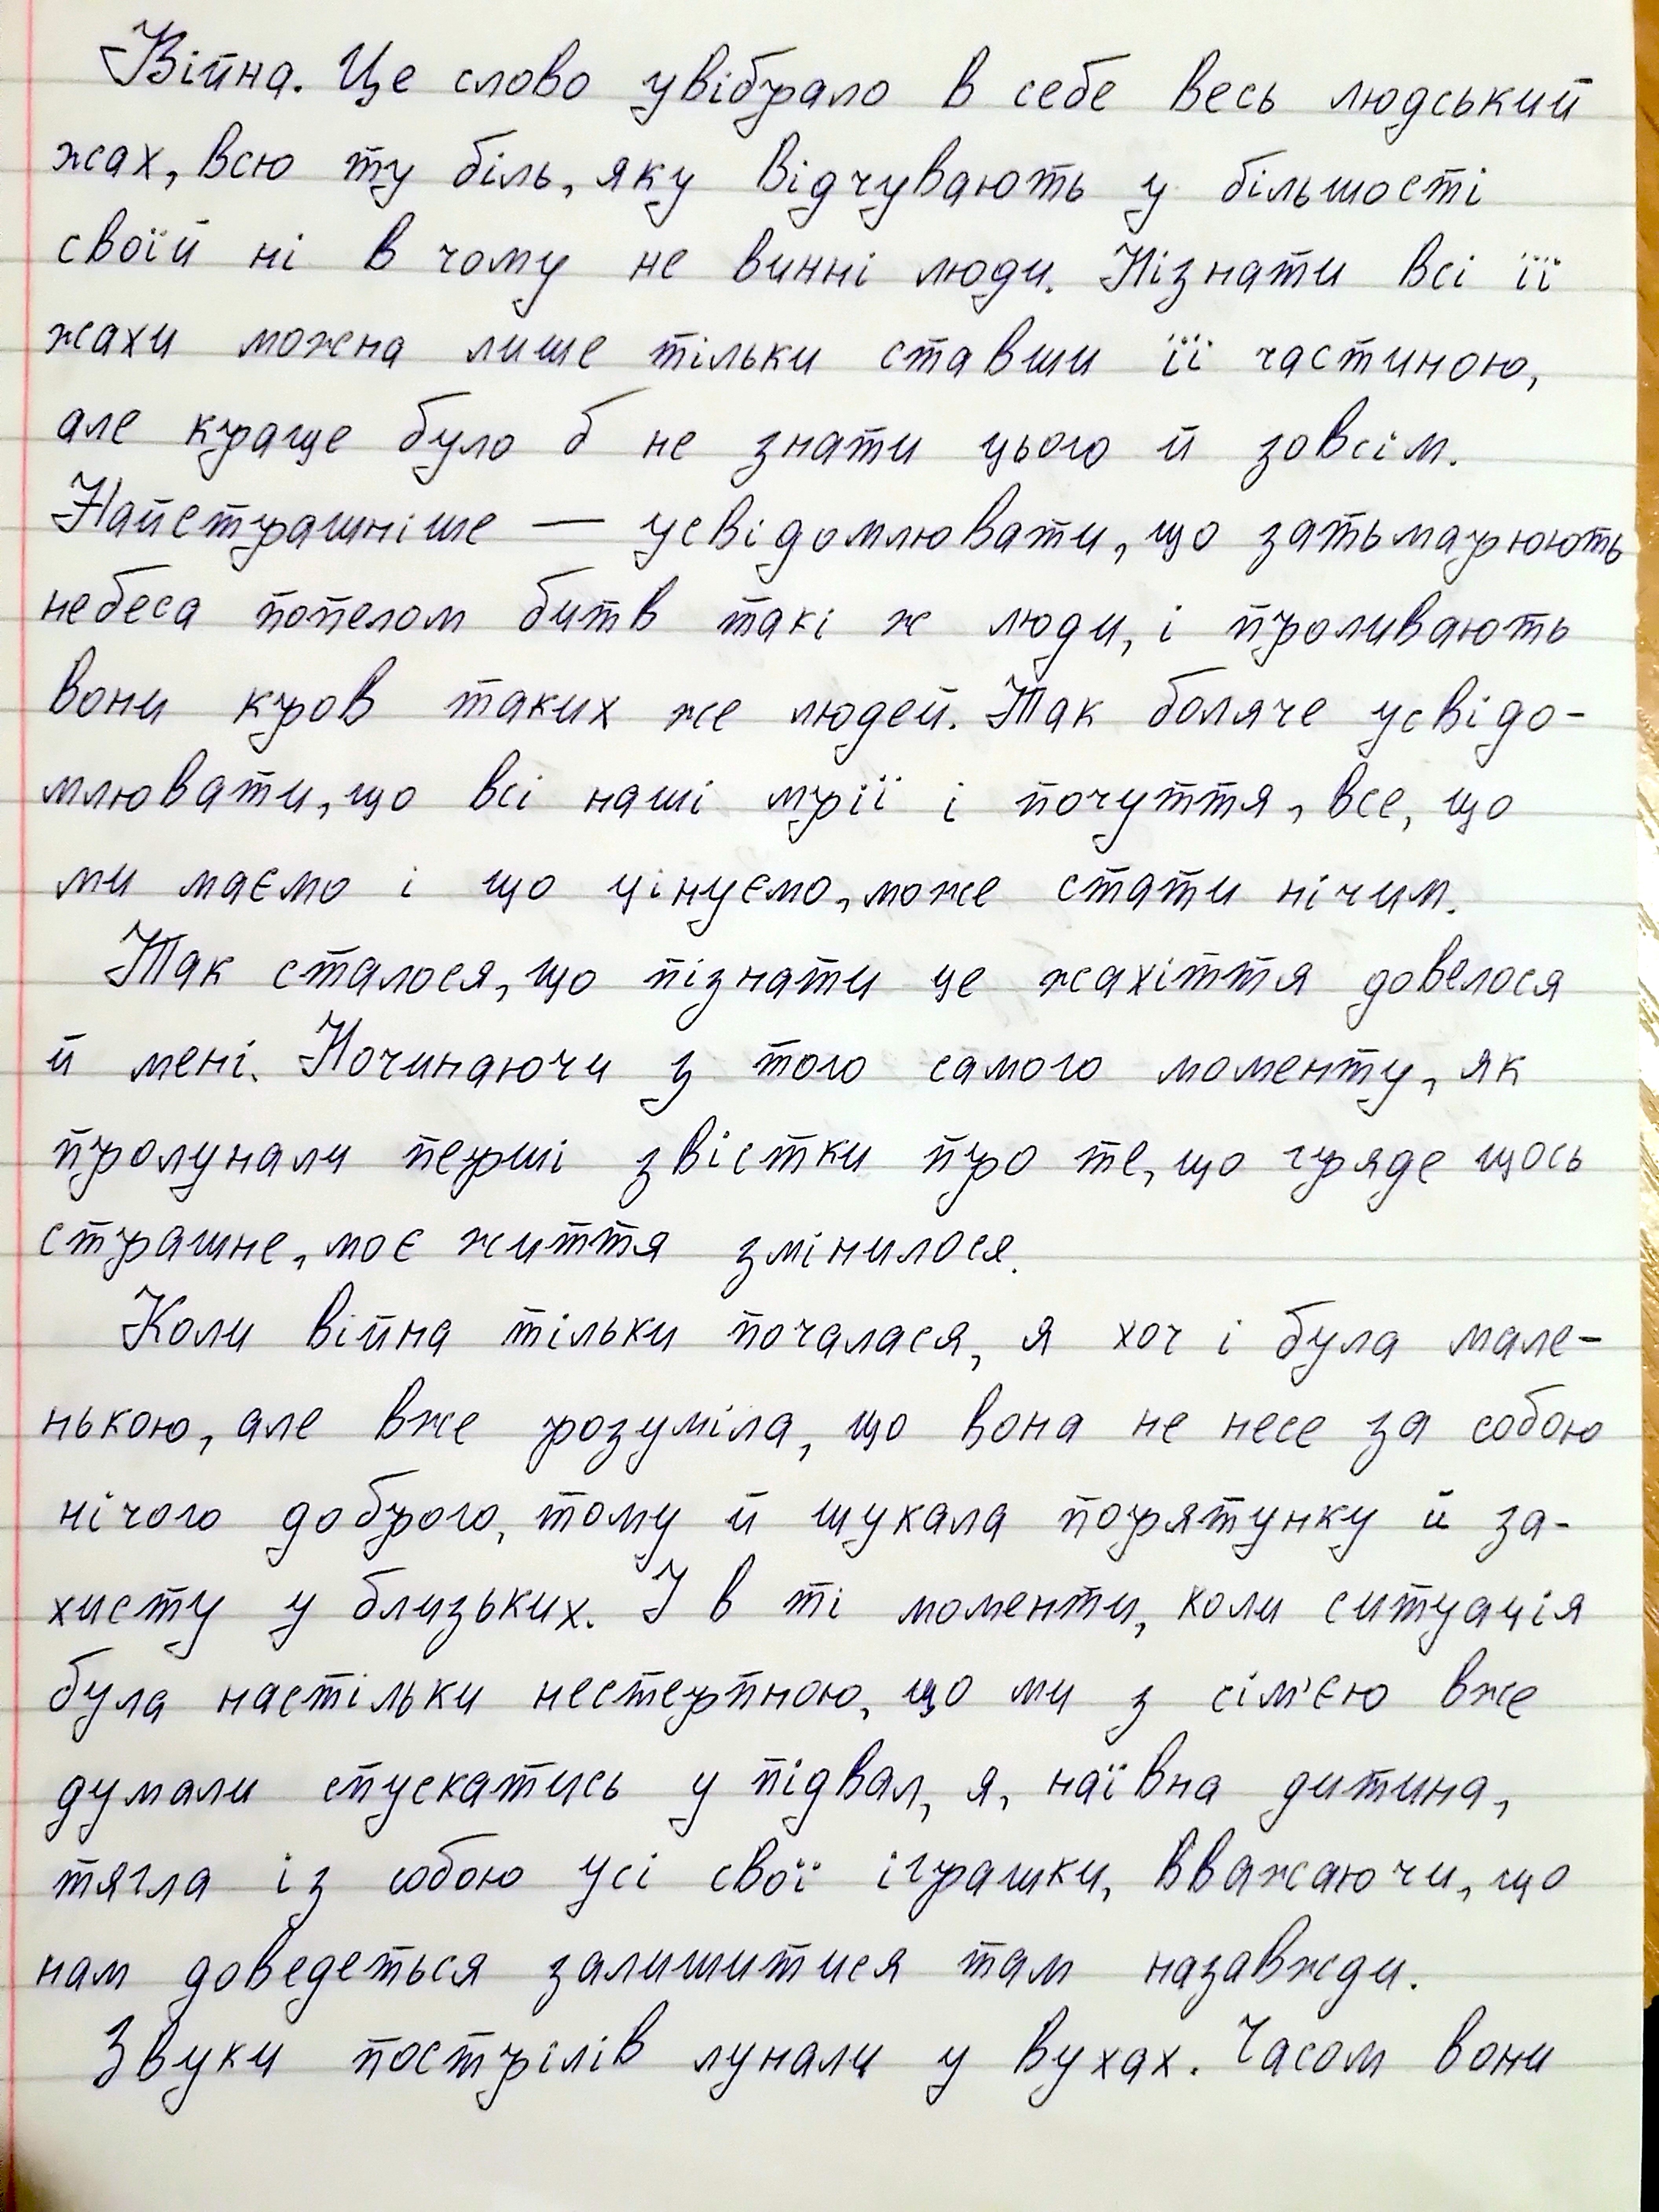 Війна. Це слово увібрало в себе весь людський
жах, всю ту біль, яку відчувають у більшості
своїй ні в чому не винні люди. Пізнати всі її
жахи можна лише тільки ставши її частиною,
але краще було б не знати цього й зовсім.
Найстрашніше — усвідомлювати, що затьмарюють
небеса попелом битв такі ж люди, і проливають
вони кров таких же людей. Так боляче усвідо-
млювати, що всі наші мрії і почуття, все, що
ми маємо і що цінуємо, може стати нічим.
Так сталося, що пізнати це жахіття довелося
й мені. Починаючи з того самого моменту, як
пролунали перші звістки про те, що гряде щось
страшне, моє життя змінилося.
Коли війна тільки почалася, я хоч і була мале-
нькою, але вже розуміла, що вона не несе за собою
нічого доброго, тому й шукала порятунку й за-
хисту у близьких. І в ті моменти, коли ситуація
була настільки нестерпною, що ми з сім'єю вже
думали спускатись у підвал, я, наївна дитина,
тягла із собою усі свої іграшки, вважаючи, що
нам доведеться залишитися там назавжди.
Звуки пострілів лунали у вухах. Часом вони